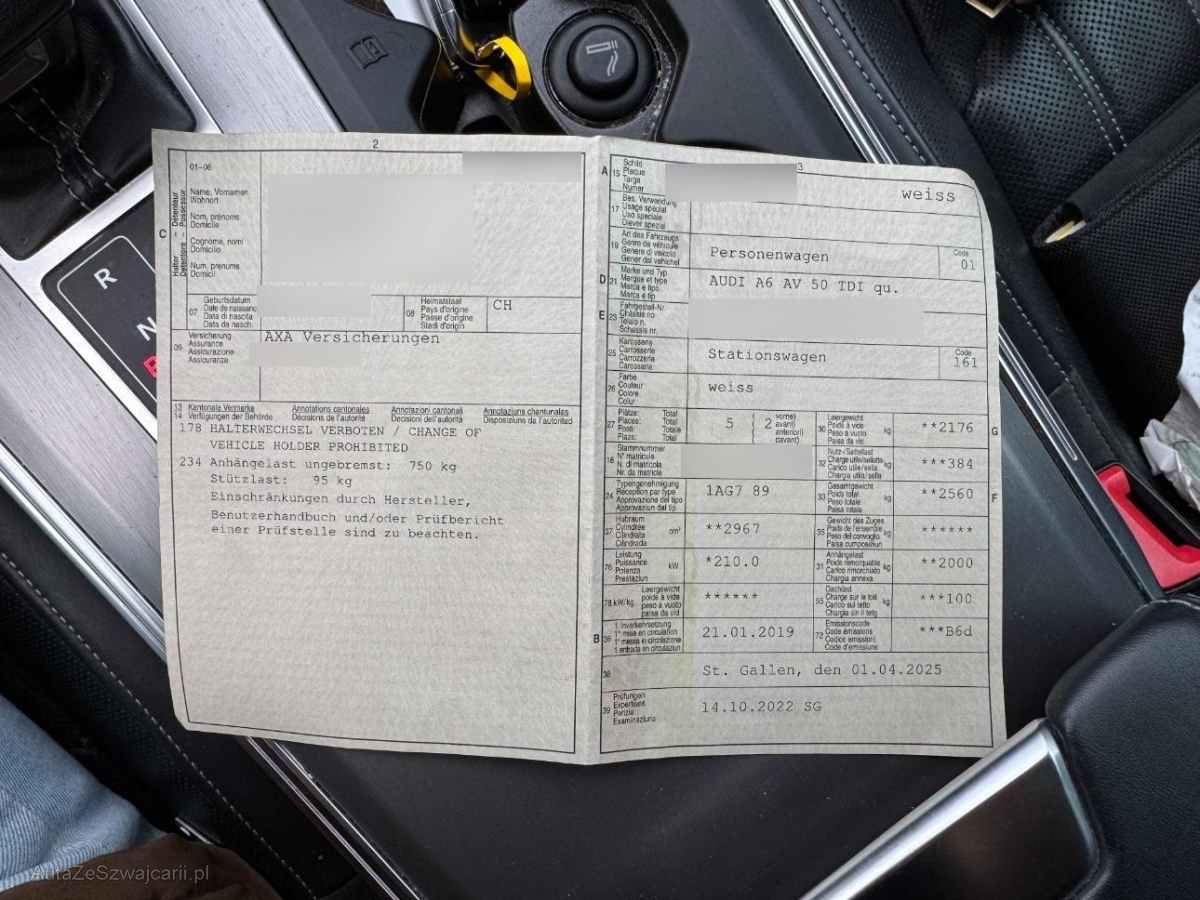 2
01-06
C
Halter - Détenteur
Detentore - Possessur
Name, Vornamen
Wohnort
Nom, prénoms
Domicile
Cognome, nomi
Domicilio
Num, prenums
Domicil
07
Geburtsdatum
Date de naissance
Data di nascita
Data da nasch.
08
Heimatstaat
Pays d'origine
Paese d'origine
Stadi d'origin
CH
09
Versicherung
Assurance
Assicurazione
Assicuranza
AXA Versicherungen
13 Kantonale Vermerke Annotations cantonales Annotazioni cantonali Annotaziuns chantunalas
14 Verfügungen der Behörde Décisions de l'autorité Decisioni dell'autorità Disposiziuns da l'autoritad
178 HALTERWECHSEL VERBOTEN / CHANGE OF
VEHICLE HOLDER PROHIBITED
234 Anhängelast ungebremst: 750 kg
Stützlast: 95 kg
Einschränkungen durch Hersteller,
Benutzerhandbuch und/oder Prüfbericht
einer Prüfstelle sind zu beachten.
3
A 15
Schild
Plaque
Targa
Numer
weiss
17
Bes. Verwendung
Usage spécial
Uso speciale
Diever spezial
19
Art des Fahrzeugs
Genre de véhicule
Genere di veicolo
Gener dal vehichel
Personenwagen
Code
01
D 21
Marke und Typ
Marque et type
Marca e tipo
Marca e tip
AUDI A6 AV 50 TDI qu.
E 23
Fahrgestell-Nr.
Châssis no
Telaio n.
Schassis nr.
25
Karosserie
Carrosserie
Carrozzeria
Carossaria
Stationswagen
Code
161
26
Farbe
Couleur
Colore
Colur
weiss
27
Plätze: Total
Places: Total
Posti: Totale
Plazs: Total
5
2
vorne)
avant)
anteriori)
davant)
30
Leergewicht
Poids à vide
Peso a vuoto
Paisa da vid
kg
**2176
G
18
Stammnummer
N° matricule
N. di matricola
Nr. da matricla
32
Nutz-/Sattellast
Charge utile/sellette
Carico utile/sella
Chargia utila/sella
kg
***384
24
Typengenehmigung
Réception par type
Approvazione del tipo
Approvaziun dal tip
1AG7 89
33
Gesamtgewicht
Poids total
Peso totale
Paisa totala
kg
**2560
F
37
Hubraum
Cylindrée
Cilindrata
Cilindrada
cm³
**2967
35
Gewicht des Zuges
Poids de l'ensemble
Peso del convoglio
Paisa cumposiziun
kg
******
76
Leistung
Puissance
Potenza
Prestaziun
kW
*210.0
31
Anhängelast
Poids remorquable
Carico rimorchiato
Chargia annexa
kg
**2000
78 kW/kg
Leergewicht
poids à vide
peso a vuoto
paisa da vid
******
55
Dachlast
Charge sur le toit
Carico sul tetto
Chargia sin il tetg
kg
***100
B 36
1. Inverkehrsetzung
1re mise en circulation
1a messa in circolazione
1. entrada en circulaziun
21.01.2019
72
Emissionscode
Code émissions
Codice emissioni
Code d'emissiuns
***B6d
38
St. Gallen, den 01.04.2025
39
Prüfungen
Expertises
Perizie
Examinaziuns
14.10.2022 SG
R
N
AutaZeSzwajcarii.pl